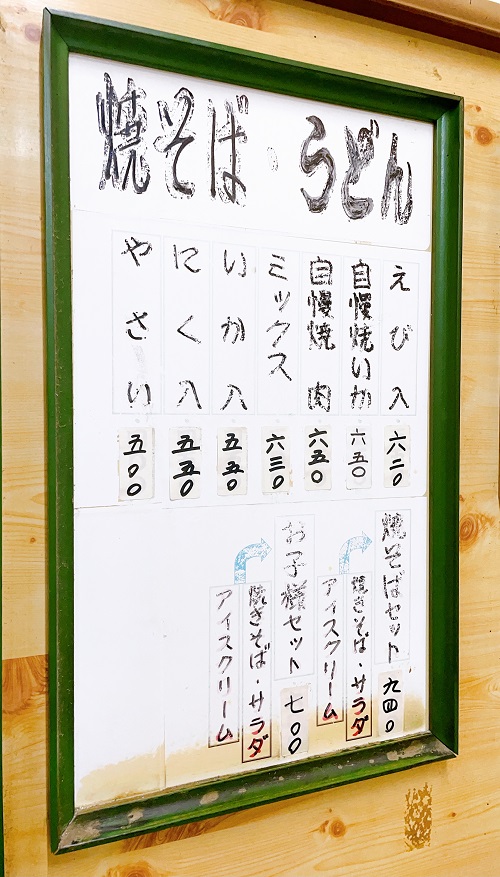 焼そば・うどん
えび入 六二〇
自慢焼いか 六五〇
自慢焼肉 六五〇
ミックス 六三〇
いか入 五五〇
にく入 五五〇
やさい 五〇〇
焼そばセット 九四〇
焼きそば・サラダ
アイスクリーム
お子様セット 七〇〇
焼きそば・サラダ
アイスクリーム